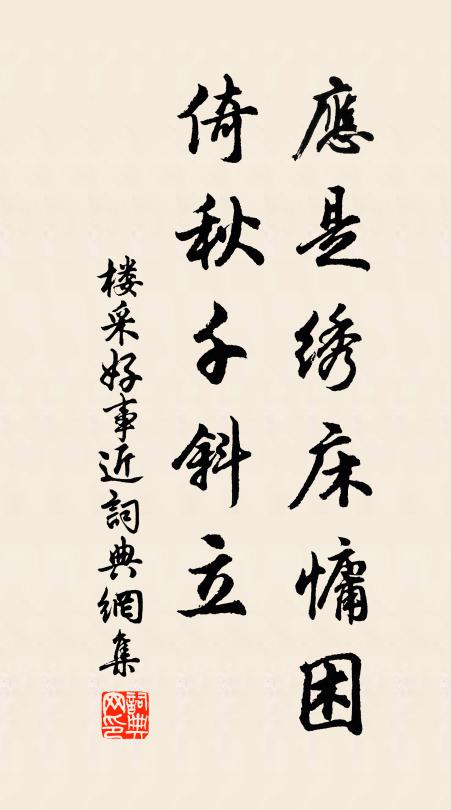 應是绣床慵困
倚秋千斜立
楼采好事近詞典網集
詞典网印